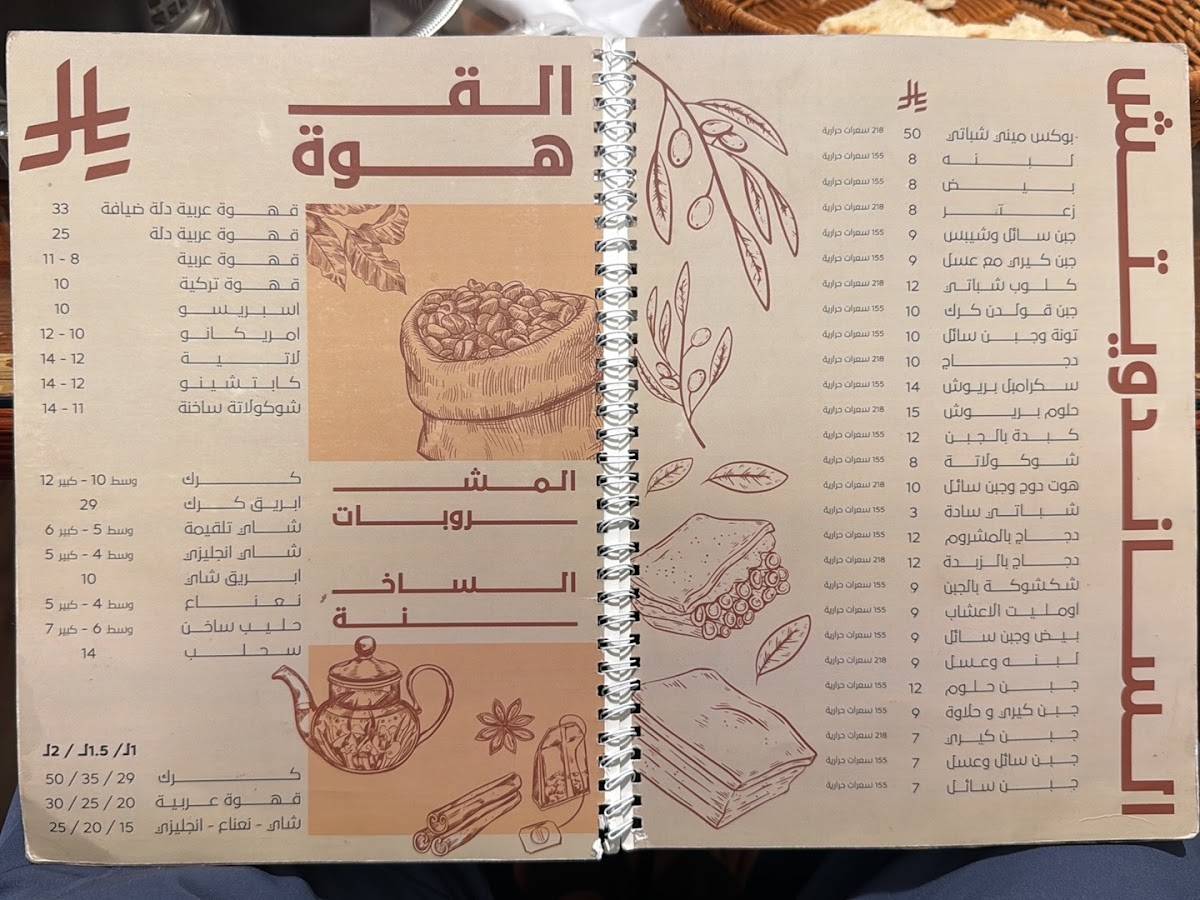 الساندويتش
بوكس ميني شباتي 50 218 سعرات حرارية
لبنه 8 155 سعرات حرارية
بيض 8 155 سعرات حرارية
زعتر 8 218 سعرات حرارية
جبن سائل وشيبس 9 155 سعرات حرارية
جبن كيري مع عسل 9 155 سعرات حرارية
كلوب شباتي 12 218 سعرات حرارية
جبن قولدن كرك 10 155 سعرات حرارية
تونة وجبن سائل 10 155 سعرات حرارية
دجاج 10 218 سعرات حرارية
سكرامبل بريوش 14 155 سعرات حرارية
حلوم بريوش 15 218 سعرات حرارية
كبدة بالجبن 12 155 سعرات حرارية
شوكولاتة 8 155 سعرات حرارية
هوت دوج وجبن سائل 10 218 سعرات حرارية
شباتي سادة 3 155 سعرات حرارية
دجاج بالمشروم 12 155 سعرات حرارية
دجاج بالزبدة 12 218 سعرات حرارية
شكشوكة بالجبن 9 155 سعرات حرارية
اومليت الاعشاب 9 155 سعرات حرارية
بيض وجبن سائل 9 155 سعرات حرارية
لبنه وعسل 9 218 سعرات حرارية
جبن حلوم 12 155 سعرات حرارية
جبن كيري و حلاوة 9 155 سعرات حرارية
جبن كيري 7 218 سعرات حرارية
جبن سائل وعسل 7 155 سعرات حرارية
جبن سائل 7 155 سعرات حرارية
القـ
ـهوة
قهوة عربية دلة ضيافة 33
قهوة عربية دلة 25
قهوة عربية 8 - 11
قهوة تركية 10
اسبريسو 10
امريكانو 10 - 12
لاتية 12 - 14
كابتشينو 12 - 14
شوكولاتة ساخنة 11 - 14
المشـ
ـروبات
الساخـ
ـنة
كرك وسط 10 - كبير 12
ابريق كرك 29
شاي تلقيمة وسط 5 - كبير 6
شاي انجليزي وسط 4 - كبير 5
ابريق شاي 10
نعناع وسط 4 - كبير 5
حليب ساخن وسط 6 - كبير 7
سحلب 14
1لـ/ 1.5لـ / 2لـ
كرك 29 / 35 / 50
قهوة عربية 20 / 25 / 30
شاي - نعناع - انجليزي 15 / 20 / 25